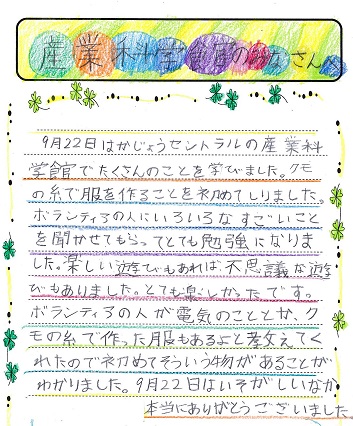 産業科学館のみなさんへ
9月22日はかじょうセントラルの産業科
学館でたくさんのことを学びました。クモ
の糸で服を作ることを初めてしりました。
ボランティアの人にいろいろなすごいこと
を聞かせてもらってとても勉強になりま
した。楽しい遊びもあれば不思議な遊
びもありました。とても楽しかったです。
ボランティアの人が電気のこととか、ク
モの糸で作った服もあるよと教えてく
れたので初めてそういう物があることが
わかりました。9月22日はいそがしいなか
本当にありがとうございました